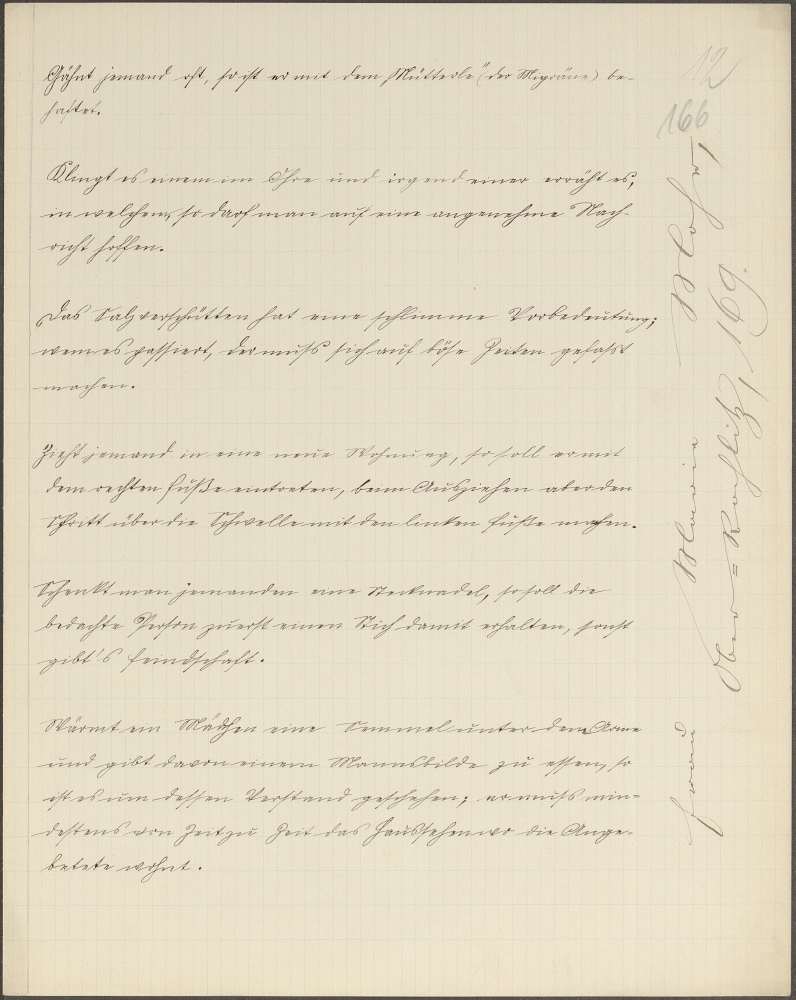 Gähnt jemand oft, so ist er mit dem „Mütterle“ (der Migräne) be-
haftet.
Klingt es einem im Ohre und irgend einer erräht es,
in welchem, so darf man auf eine angenehme Nach-
richt hoffen.
Das Salzverschütten hat eine schlimme Vorbedeutung;
wem es passiert, der muß sich auf böse Zeiten gefaßt
machen.
Zieht jemand in eine neue Wohnung, so soll er mit
dem rechten Fuße eintreten, beim Ausziehen aber den
Schritt über die Schwelle mit den linken Fuße machen.
Schenkt man jemanden eine Stecknadel, so soll die
bedachte Person zuerst einen Stich damit erhalten, sonst
gibt's Feindschaft.
Wärmt ein Mädchen eine Semmel unter dem Arme
und gibt davon einem Mannsbilde zu essen, so
ist es um dessen Verstand geschehen; er muß min-
destens von Zeit zu Zeit das Haus sehen wo die Ange-
betete wohnt.
12
166
Frau Marie
Ober-Rochlitz, 169.